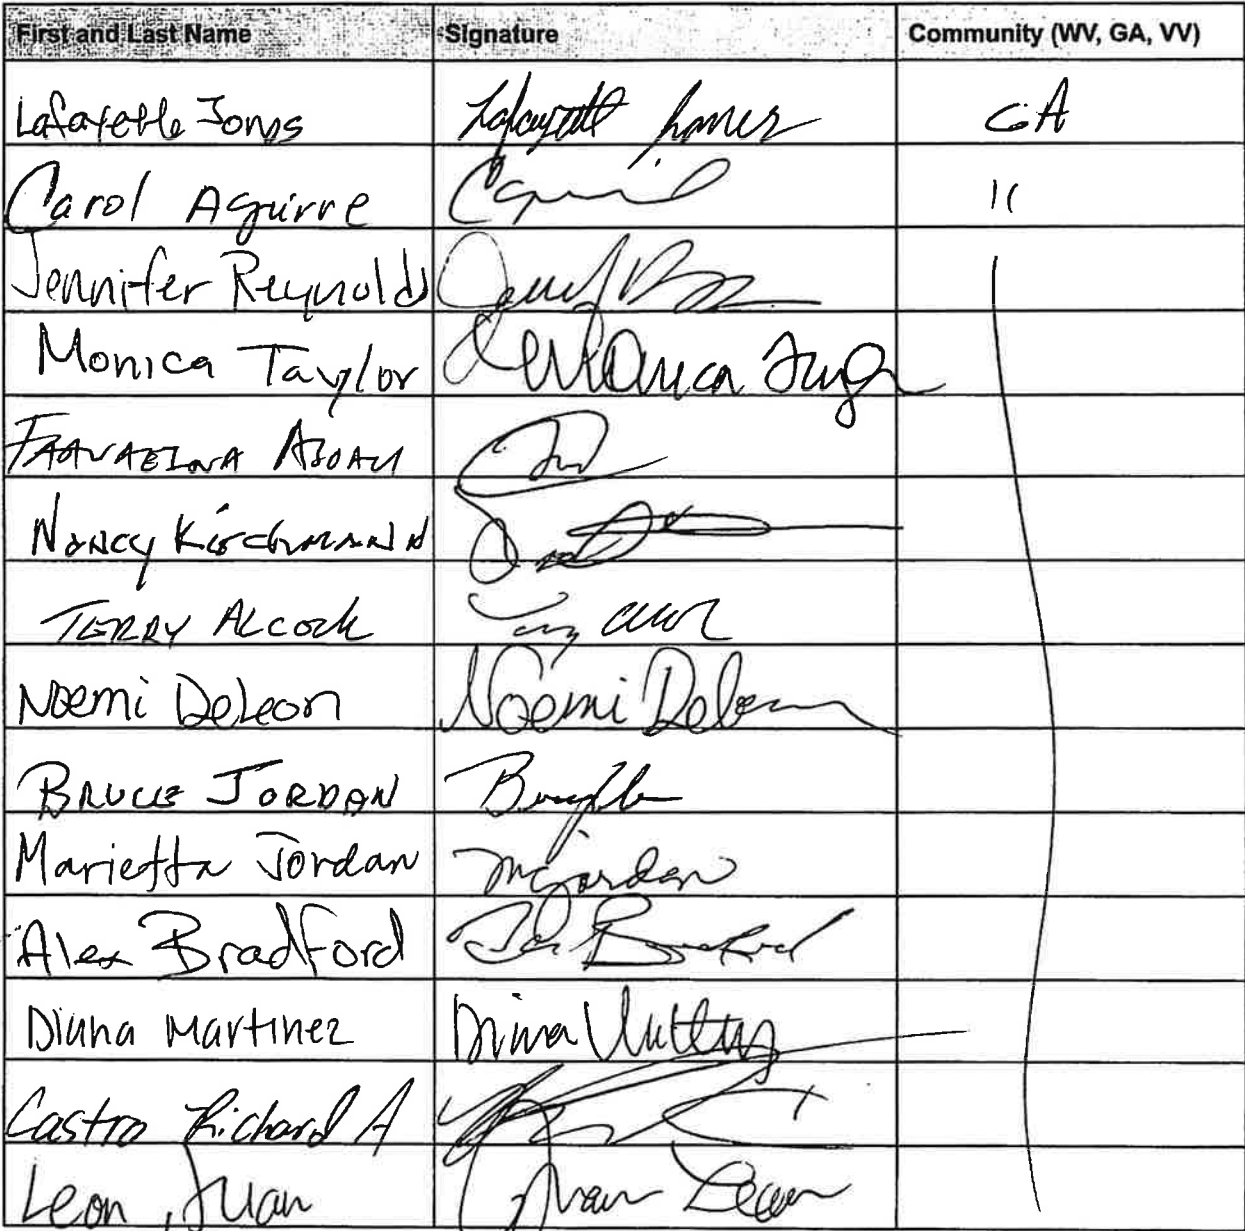 First and Last Name Signature Community (WV, GA, VV)
Lafayette Jones Lafayette Jones GA
Carol Aguirre "
Jennifer Reynolds
Monica Taylor Monica
Nancy Kirchmann
TERRY ALCOCK
Noemi DeLeon Noemi DeLeon
BRUCE JORDAN
Marietta Jordan MJordan
Alex Bradford Bradford
Diana Martinez Diana
Castro Richard A
Leon, Juan Juan Leon